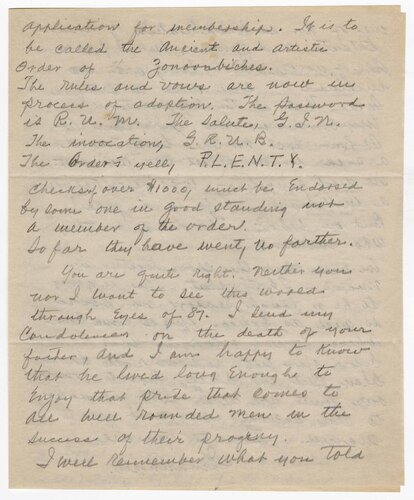 application for membership. It is to
be called the Ancient and artistic
Order of Zonoovbiches.
The rules and vows are now in
process of adoption. The password
is R. U. M. The Salute, G. I. N.
The invocation, G. R. U. B.
The Order's yell, P.L.E.N.T.Y.
Checks, over $1000, must be Endorsed
by some one in good standing not
a member of the order.
So far they have went, no farther.
You are quite right. Neither you
nor I want to see this world
through Eyes of 87. I send my
Condolences on the death of your
father, and I am happy to know
that he lived long Enough to
Enjoy that pride that comes to
all well rounded men in the
success of their progeny.
I well remember what you told